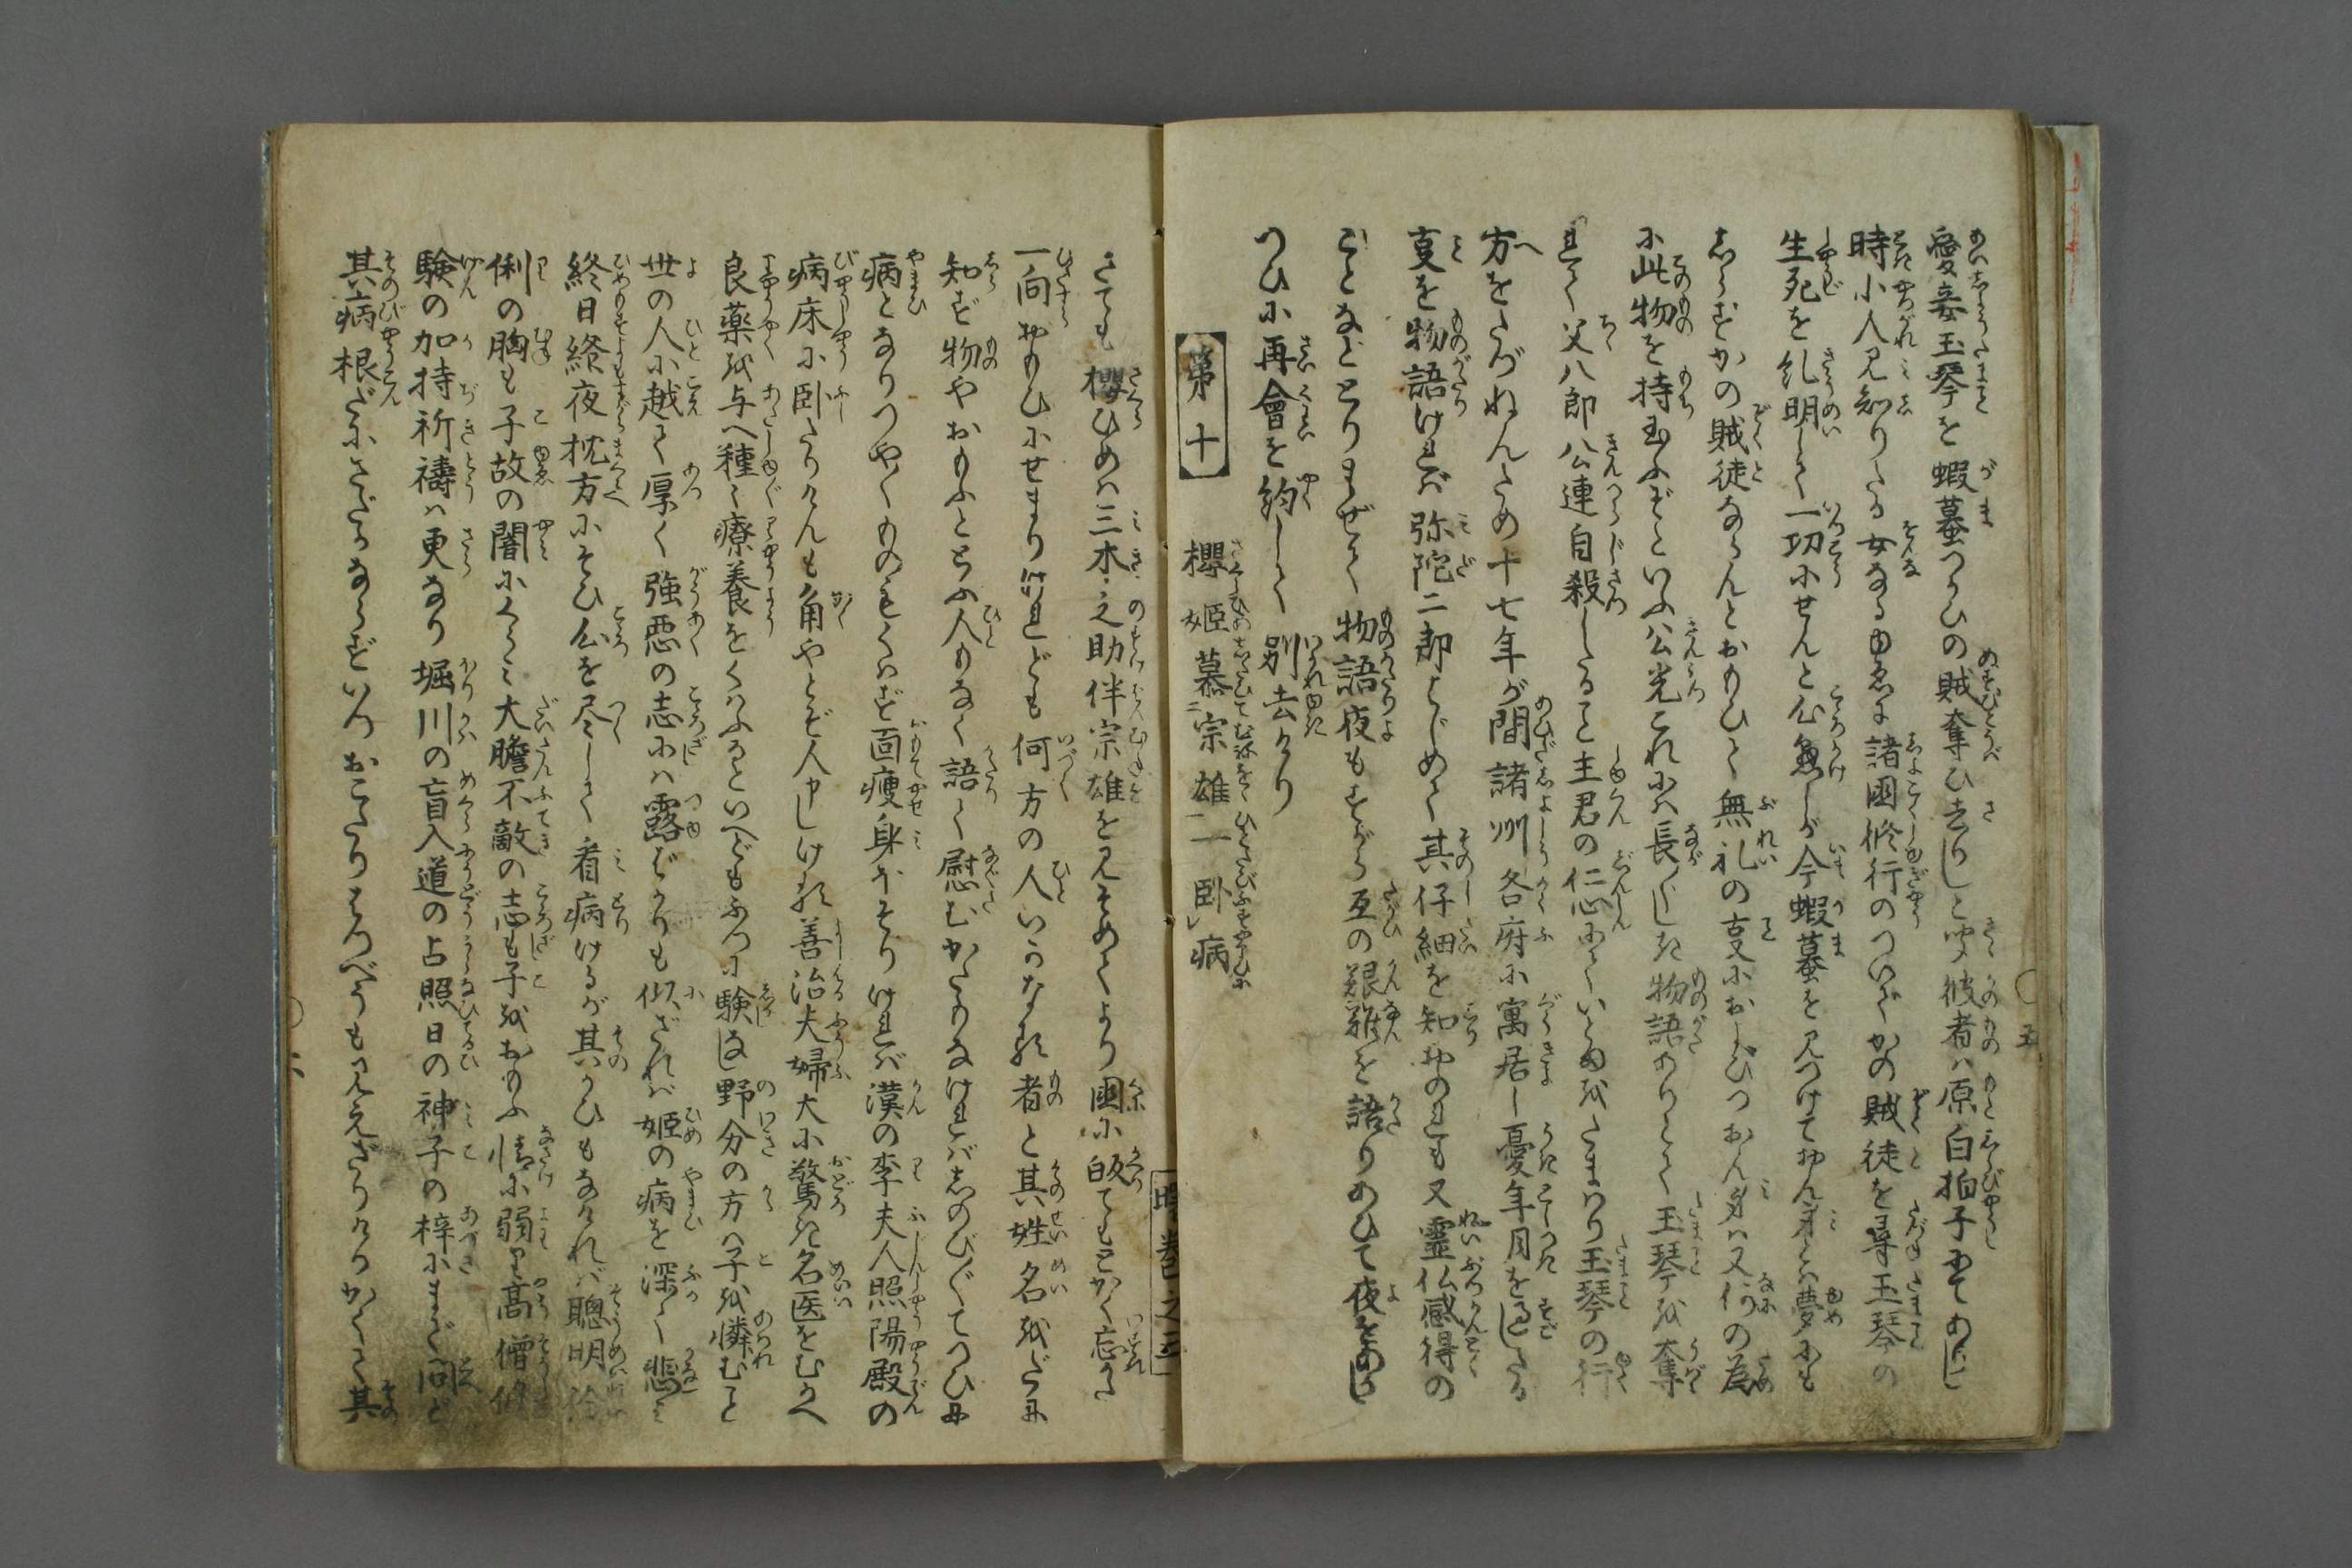 愛妾玉琴を蝦蟇つかひの賊奪ひ去りしと聞彼者ハ原白拍子にてありし
時小人見知りたる女なるゆゑに諸國修行のついでかの賊徒を尋玉琴の
生死を糺明して一功にせんと心懸しが今蝦蟇を見つけておん身とハ夢にも
しらずかの賊徒ならんとおもひて無礼の叓におよびつおん身ハ又何の為
に此物を持玉ふぞといふ公光これにハ長〱しき物語ありとて玉琴を奪
れて父八郎公連自殺したること主君の仁心にていとまをたまハり玉琴の行
方をたづねんため十七年が間諸州各府に寓居し憂年月を過したる
叓を物語けれバ弥陀二郎はじめて其仔細を知おのれも又霊仏感得の
ことなどとりまぜて物語夜もすがら互の艱難を語りあひて夜をあかし
つひに再會を約して別去けり
第十　櫻姫慕宗雄一臥病
さても櫻ひめハ三木之助伴宗雄を見そめてより國に皈てもとかく忘かた
一向おもひにせまりけれども何方の人いかなる者と其姓名をだに
知ず物やおもふととふ人もなく語て慰むかたもなけれバしのび〱てつひに
病となりつやゝものもくハず面痩身ほそりけれバ漢の李夫人照陽殿の
病床に臥たりけんも角やとぞ人申しける善治夫婦大に驚き名医をむかへ
良薬を与へ種〻療養をくハふるといへどもふつに験なし野分の方ハ子を憐むこと
世の人に越て厚く強悪の志にハ露ばかりも似ざれバ姫の病を深く悲ミ
終日終夜枕方にそひ心を尽して看病けるが其かひもなけれバ聰明伶
俐の胸も子故の闇にくらミ大膽不敵の志も子をおもふ情に弱り髙僧修
験の加持祈禱ハ更なり堀川の盲入道の占照日の神子の梓にまで問ど
其病根だにさだかならずいつおこたりはつべうも見えざりけりかくて其
時巻之三
五